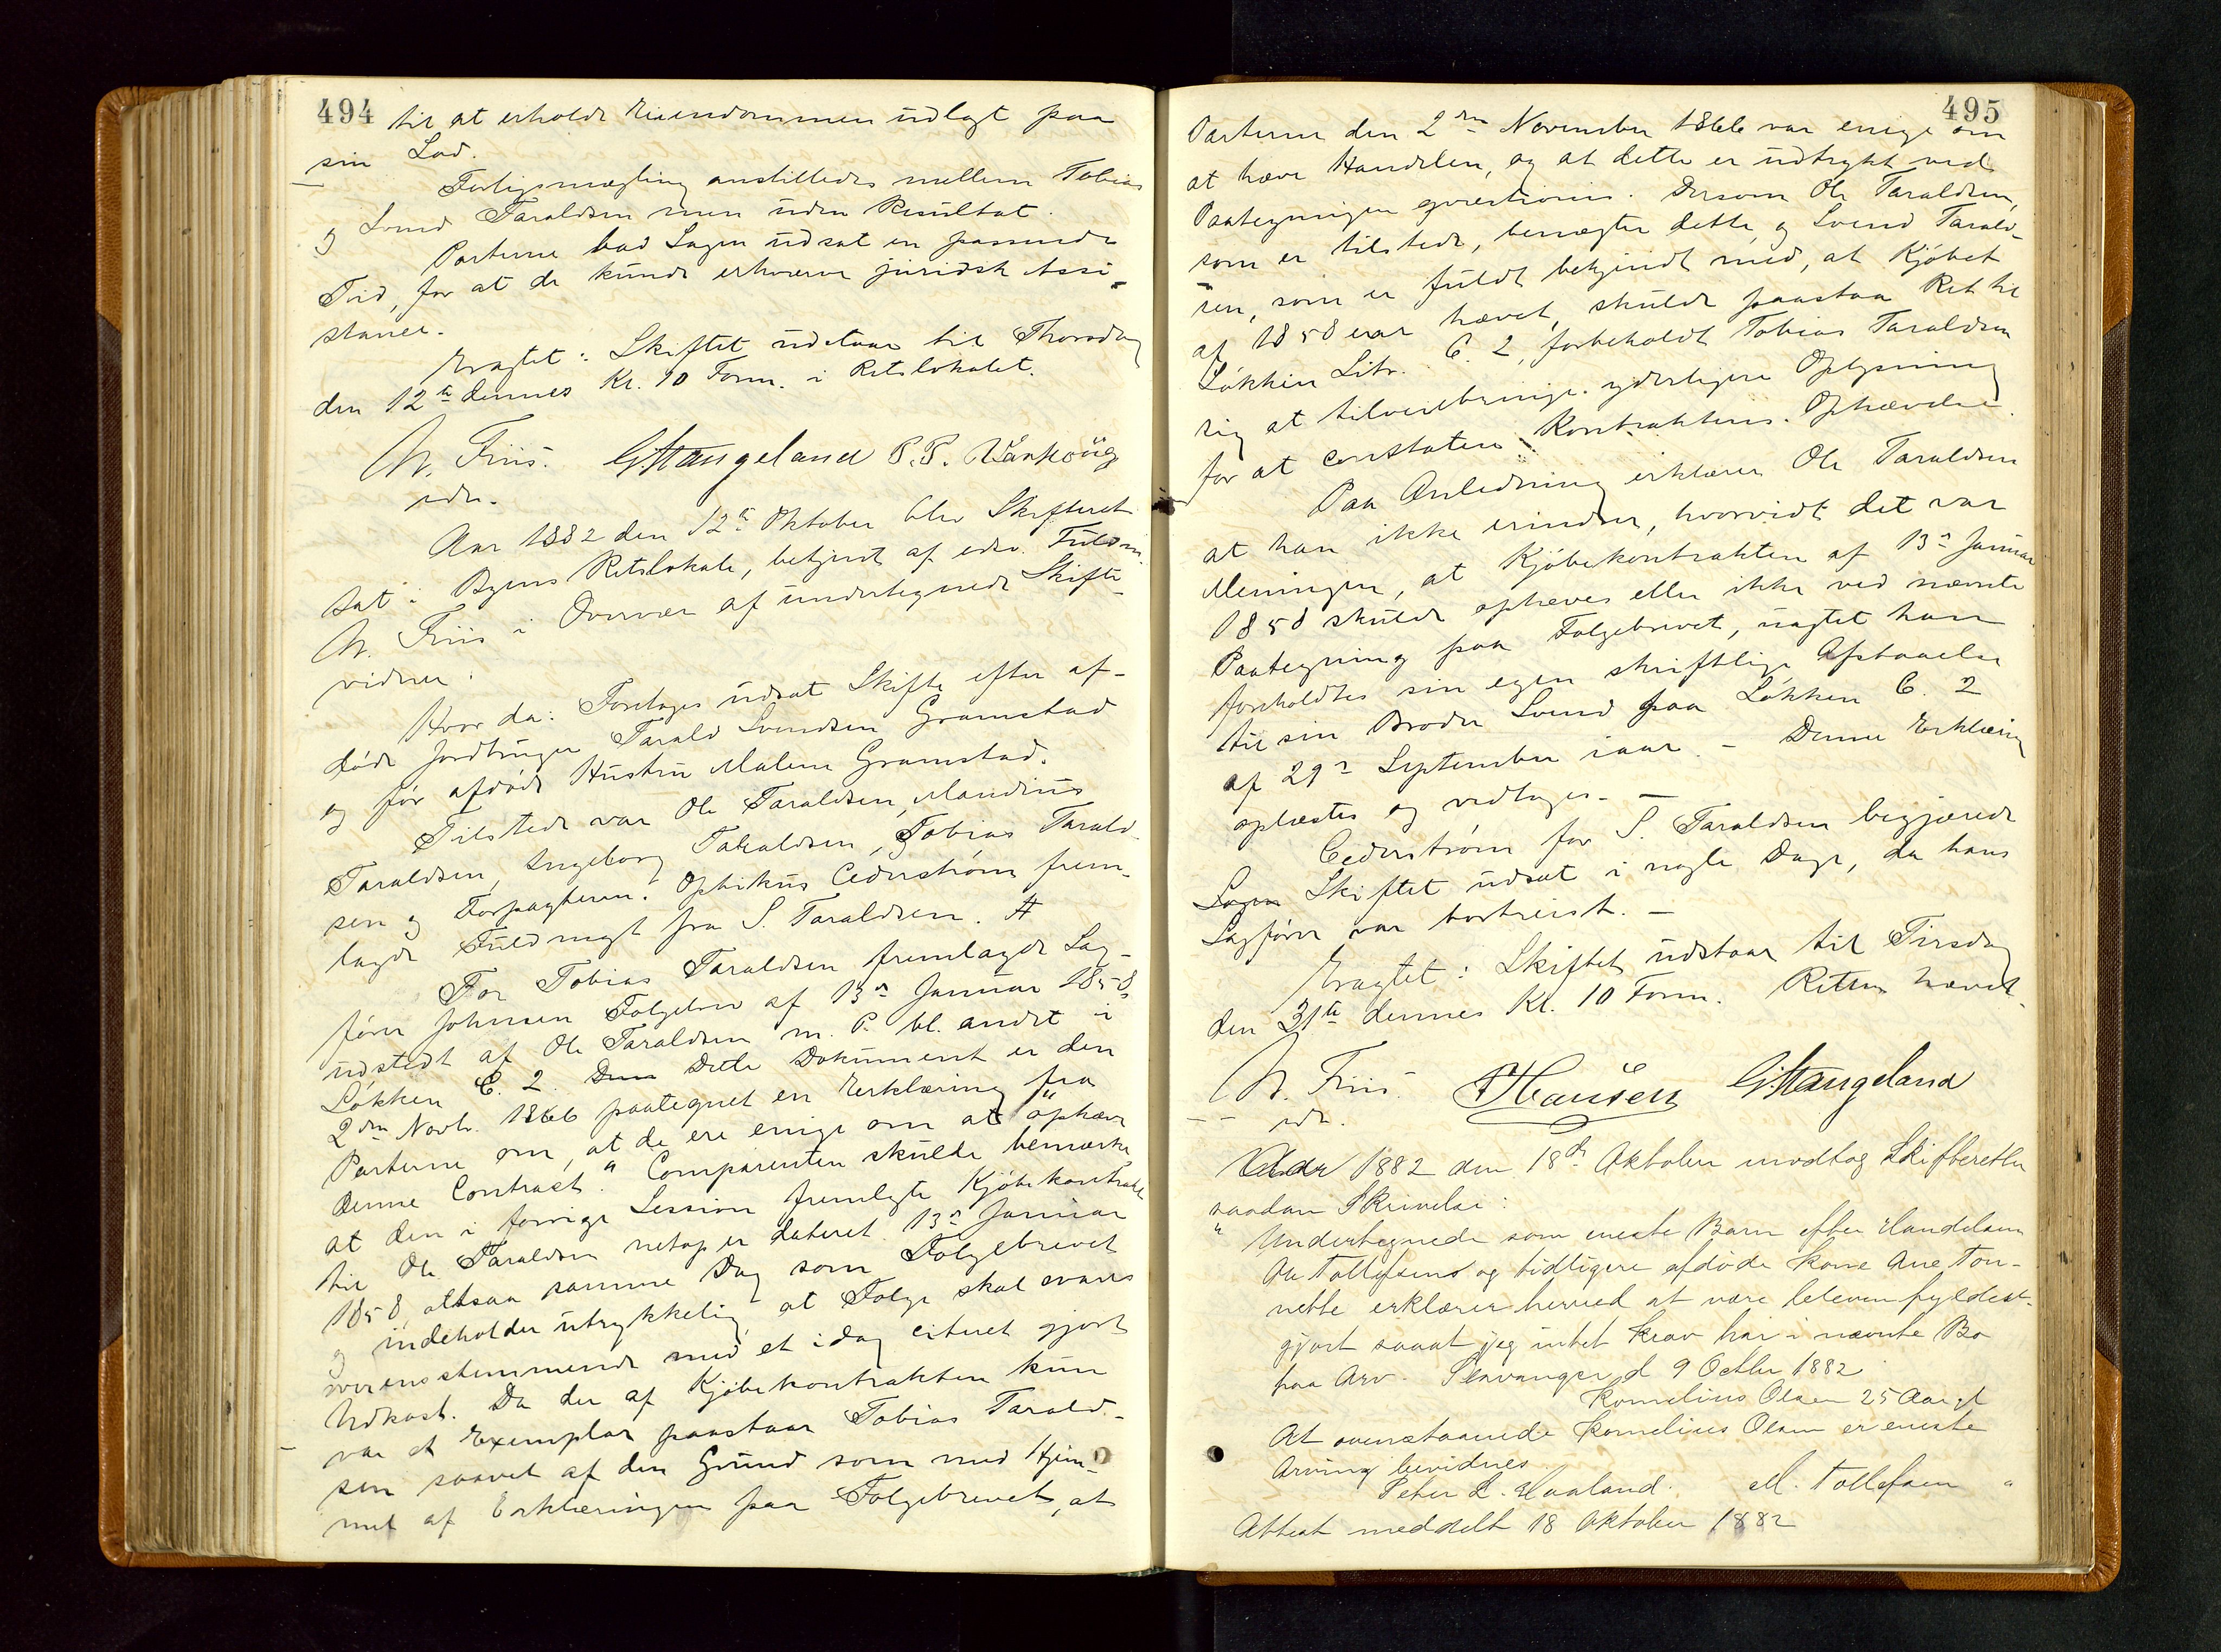 494
til at erholde Eiendommen udlagt paa
sin Lod.
Forligsmægling anstilledes mellem Tobias
og Svend Taraldsen men uden Resultat.
Parterne bad Sagen udsat en passende
Tid, for at de kunde erhverve juridisk Assi-
stance.
Eragtet: Skiftet udstaar til Thorsdag
den 12te dennes Kl. 10 Form. i Retslokalet.
N. Friis. G. Stangeland P.P. Vaskoug
edv.
Aar 1882 den 12te Oktober blev Skifteret
sat i Byens Retslokale, betjent af edsv. Fuldm.
N. Friis i Overvær af undertegnede Skifte-
vidner.
Hvor da: Foretoges udsat Skifte efter af-
døde Jordbruger Tarald Svendsen Gramstad
og før afdøde Hustru Malene Gramstad.
Tilstede var Ole Taraldsen, Mandius
Taraldsen, Ingeborg Taraldsen, Tobias Tarald-
sen og Forpagteren. Optikus Cederstrøm frem-
lagde Fuldmagt fra S. Taraldsen. #
For Tobias Taraldsen fremlagde Sag-
fører Johnsen Følgebrev af 13de Januar 1858,
udstedt af Ole Taraldsen m. P. bl. andet i
Løkken C. 2. Denn Dette Dokument er den
2den Novb. 1866 paategnet en Erklæring fra
Parterne om, at de ere enige om at "ophæve
denne Contract". Comparenten skulde bemærke
at den i forrige Session fremlagte Kjøbekontrakt
til Ole Taraldsen netop er dateret 13de Januar
1858, altsaa samme Dag som Følgebrevet
og indeholder udtrykkelig, at Følge skal svares
overensstemmende med et idag citeret gjort
Udkast. Da der af Kjøbekontrakten kun
var et Exemplar paastaar Tobias Tarald-
sen saavel af den Grund som med Hjem-
mel af Erklæringen paa Følgebrevet, at
495
Parterne den 2den November 1866 var enige om
at hæve Handelen, og at dette er udtrykt ved
Paategningen qvæstionis. Dersom Ole Taraldsen,
som er tilstede, benægter dette, og Svend Tarald-
sen, som er fuldt bekjendt med, at Kjøbet
af 1858 var hævet, skulde paastaa Ret til
Løkken Litr. C. 2, forbeholdt Tobias Taraldsen
sig at tilveiebringe yderligere Oplysning
for at constatere Kontraktens Ophævelse.
Paa Anledning erklærer Ole Taraldsen
at han ikke erindrer, hvorvidt det var
Meningen, at Kjøbekontrakten af 13de Januar
1858 skulde ophæves eller ikke ved nævnte
Paategning paa Følgebrevet, uagtet han
foreholdtes sin egen skriftlige Afstaaelse
til sin Broder Svend paa Løkken C. 2
af 29de September iaar. – Denne Erklæring
oplæstes og vedtoges. –
Cederstrøm for S. Taraldsen begjærede
Sagen Skiftet udsat i nogle Dage, da hans
Sagfører var bortreist. –
Eragtet: Skiftet udstaar til Tirsdag
den 31te dennes Kl. 10 Form. Retten hævet.
N. Friis. Hansen G. Stangeland
edv.
Aar 1882 den 18de Oktober modtog Skifteretten
saadan Skrivelse:
"Undertegnede som eneste Barn efter Handelsm
Ole Tollefsens og tidligere afdøde Kone Ane Ton-
nette erklærer herved at være bleven fyldest-
gjort saaat jeg intet Krav har i nævnte Bo
paa Arv. Stavanger d 9 Octbr 1882
Kornelius Olsen 25 Aar gl
At ovenstaaende Kornelius Olsen er eneste
Arving bevidnes
Peter L. Haaland. M. Tollefsen "
Attest meddelt 18 Oktober 1882